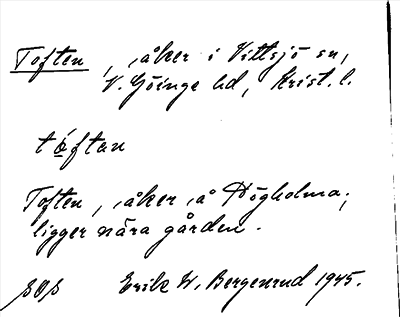 Toften, åker i Vittsjö sn,
V. Göinge hd, Krist. l.
tóftan
Toften, åker å Högholma;
ligger nära gården.
Erik W. Bergenrud 1945.